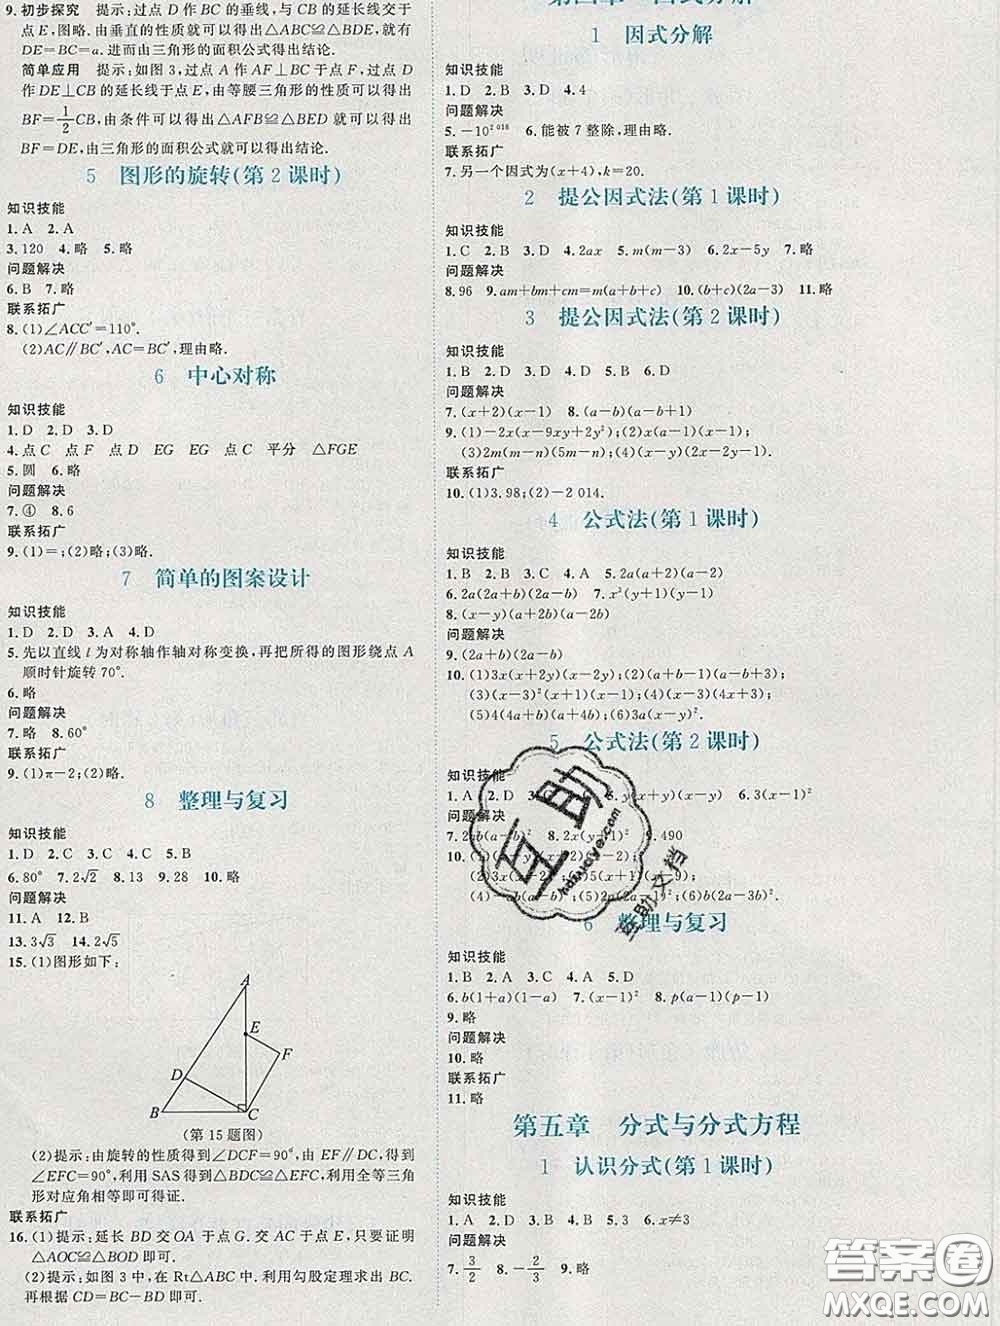 9.初步探究 提示:过点 D 作 BC 的垂线,与 CB 的延长线交于
点 E,图略. 由垂直的性质就可以得出△ABC≌△BDE,就有
DE=BC=a. 进而由三角形的面积公式得出结论.
简单应用 提示:如图 3,过点 A 作 AF⊥BC 于点 F,过点 D
作 DE⊥CB 的延长线于点 E,由等腰三角形的性质可以得出
BF=1/2CB,由条件可以得出△AFB≌△BED 就可以得出
BF=DE,由三角形的面积公式就可以得出结论.
5 图形的旋转(第 2 课时)
知识技能
1.A 2.A
3.120 4.略 5.略
问题解决
6.B 7.略
联系拓广
8.(1)∠ACC′=110°.
(2)AC∥BC′,AC=BC′,理由略.
6 中心对称
知识技能
1.D 2.D 3.D
4.点 C 点 F 点 D EG EG 点 C 平分 △FGE
5.圆 6.略
问题解决
7.④ 8.6
联系拓广
9.(1)=;(2)略;(3)略.
7 简单的图案设计
知识技能
1.D 2.D 3.A 4.D
5.先以直线 l 为对称轴作轴对称变换,再把所得的图形绕点 A
顺时针旋转 70°.
6.略
问题解决
7.略 8.60°
联系拓广
9.(1)π-2;(2)略.
8 整理与复习
知识技能
1.D 2.C 3.C 4.C 5.B
6.80° 7.2√2 8.13 9.28 10.略
问题解决
11.A 12.B
13.3√3 14.2√5
15.(1)图形如下:
A
E
F
D
B C
(第 15 题图)
(2)提示:由旋转的性质得到∠DCF=90°,由 EF∥DC,得到
∠EFC=90°,利用 SAS 得到△BDC≌△EFC,利用全等三角
形对应角相等即可得证.
联系拓广
16.(1)提示:延长 BD 交 OA 于点 G. 交 AC 于点 E,只要证明
△AOC≌△BOD 即可.
(2)提示:如图 3 中,在 Rt△ABC 中,利用勾股定理求出 BC.
再根据 CD=BC-BD,可得结果.
1 因式分解
知识技能
1.D 2.D 3.D 4.4
问题解决
5.-10²⁰¹⁸ 6.能被 7 整除,理由略.
联系拓广
7.另一个因式为(x+4),k=20.
2 提公因式法(第 1 课时)
知识技能
1.C 2.B 3.D 4.2ax 5.m(m-3) 6.2x-5y 7.略
问题解决
8.96 9.am+bm+cm=m(a+b+c) 10.(b+c)(2a-3) 11.略
3 提公因式法(第 2 课时)
知识技能
1.B 2.D 3.D 4.D 5.B 6.D
问题解决
7.(x+2)(x-1) 8.(a-b)(a-b+1)
9.(1)-2x(x-9xy+2y²);(2)4x(a-1)(x-1);
(3)2m(m-n)(5m-n);(4)(x-y)(2x-2y-1).
联系拓广
10.(1)3.98;(2)-2 014.
4 公式法(第 1 课时)
知识技能
1.C 2.B 3.C 4.B 5.2a(a+2)(a-2)
6.2a(2a+b)(2a-b) 7.x²(y+1)(y-1)
8.(x-y)(a+2b)(a-2b)
问题解决
9.(2a+b)(2a-b)
10.(1)3x(x+2y)(x-2y);(2)(a+b-1)(a-b+3);
(3)(x-3)²(x+1)(x-1);(4)(x-3)(4x-3);
(5)4(4a+b)(a+4b);(6)3a(x-y)².
5 公式法(第 2 课时)
知识技能
问题解决
9.490
6 整理与复习
知识技能
1.B 2.A 3.C 4.A 5.D
6.b(1+a)(1-a) 7.(x-1)² 8.p(a-1)(p-1)
9.略
问题解决
10.略
联系拓广
11.略
第五章 分式与分式方程
1 认识分式(第 1 课时)
知识技能
1.A 2.D 3.B 4.B 5.3 6.x≠3
问题解决
7.3/2 8.-2/3 9.略
互助
hdzuoye.com
互助文档
答案圈
MXQE.COM